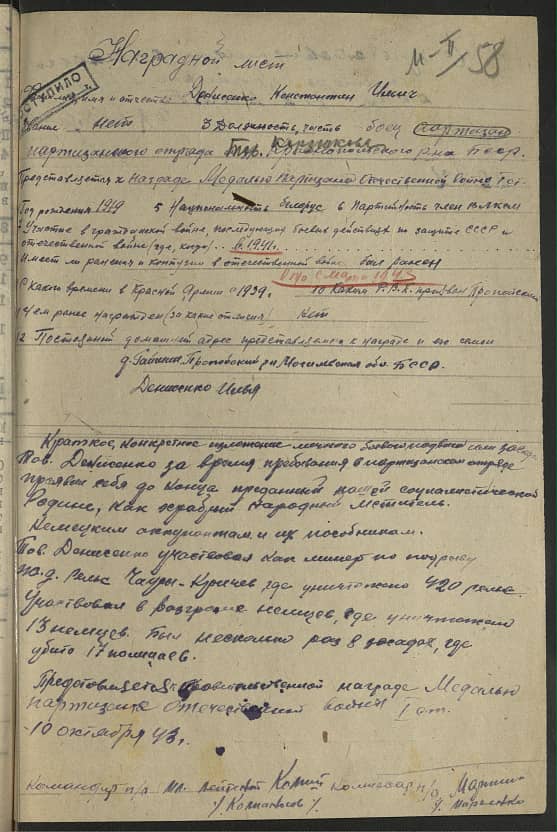 Наградной лист
II/58
СТУПИЛО
имя и отчество Денисенко Константин Ильич
Звание нет 3 Должность, часть боец партизан
партизанского отряда р-на БССР.
Представляется к награде Медалью Партизана Отечественной войны I ст.
Год рождения 1919 5 Национальность белорус 6 Партийность член ВЛКСМ
Участие в гражданской войне, последующих боевых действиях по защите СССР и
отечественной войне (где, когда) с 1941 г.
Имеет ли ранения и контузии в отечественной войне был ранен
с мая 1943
С какого времени в Красной Армии с 1939 г. 10 Каким Р.В.К. призван Пропойским
Чем ранее награжден (за какие отличия) нет
12 Постоянный домашний адрес представляемого к награде и его семьи
д. Пропойский р-н Могилевская обл. БССР.
Денисенко Илья
Краткое, конкретное изложение личного боевого подвига или заслуг
Тов. Денисенко за время пребывания в партизанском отряде
проявил себя до конца преданным нашей социалистической
Родине, как храбрый народный мститель.
Немецким оккупантам и их пособникам.
Тов. Денисенко участвовал как минер по подрыву
ж.д. рельс Чаусы-Кричев где уничтожено 420 рельс.
Участвовал в разгроме немцев, где уничтожено
13 немцев. Был несколько раз в засадах, где
убито 17 полицаев.
Представляется к правительственной награде Медалью
партизана Отечественной войны I ст.
10 октября 43 г.
Командир п/о мл. лейтенант Комиссар п/о